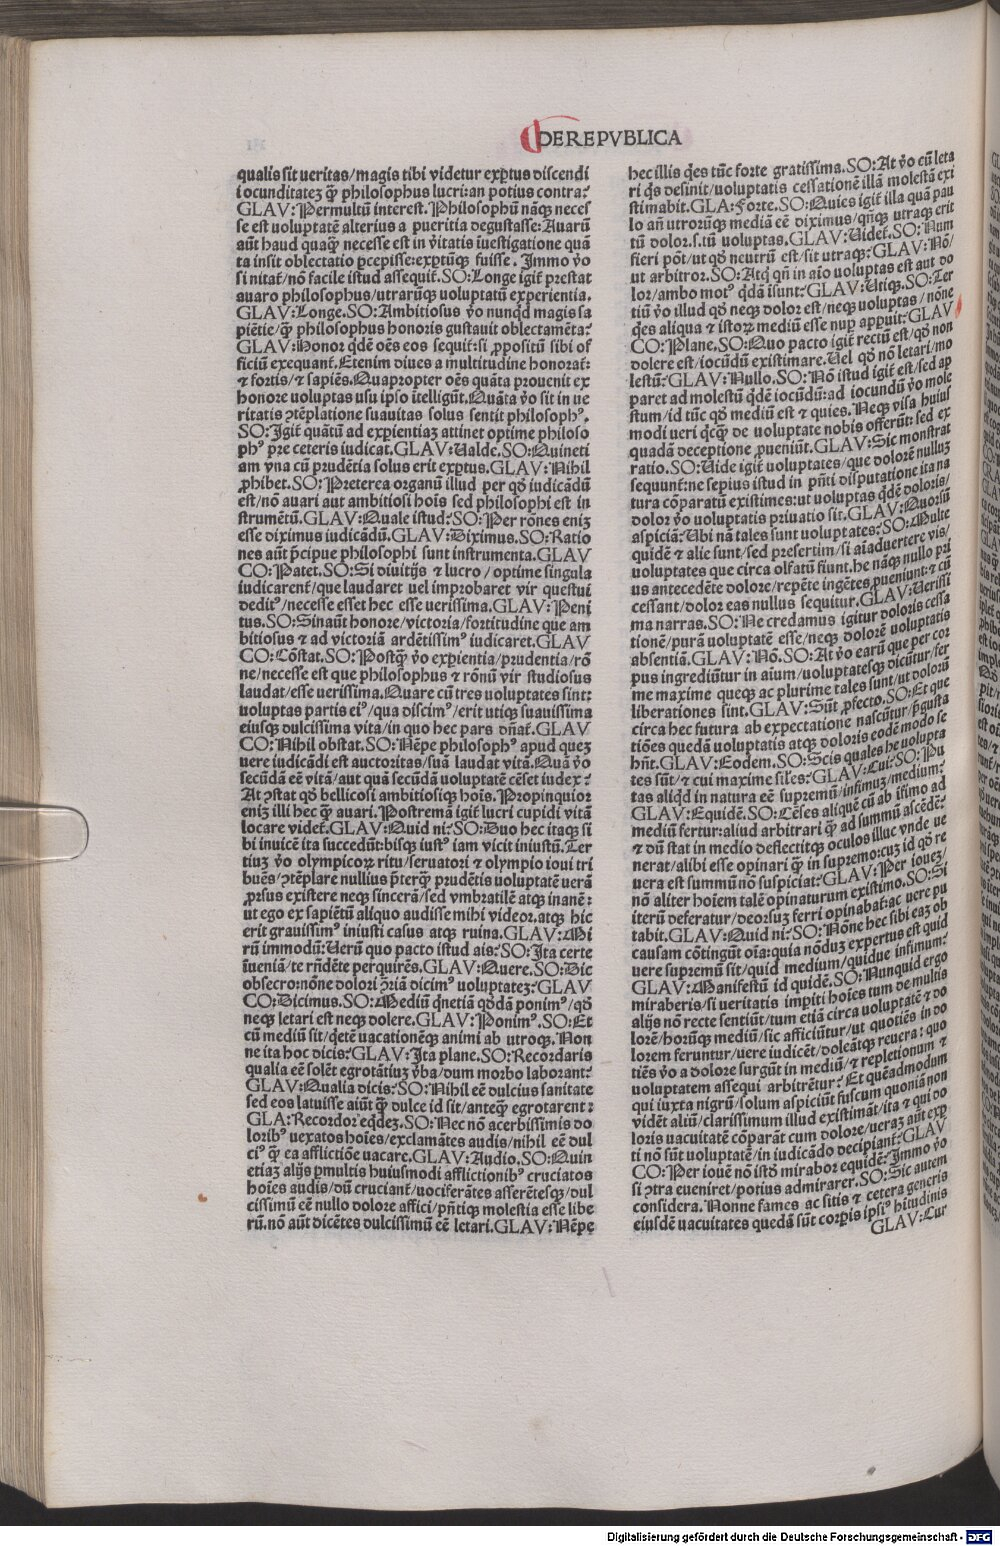 DEREPVBLICA
qualis sit ueritas/magis tibi videtur exꝑtus discendi
iocunditatez qͣ̃ philosophus lucri:an potius contra?
GLAV:Permultũ interest. Philosophũ nãqꝫ neces
se est voluptatẽ alterius a pueritia degustasse: Auarũ
aũt haud quaqͣ̃ necesse est in v̾itatis ĩuestigatione quã
ta insit oblectatio ꝑcepisse:exꝑtũqꝫ fuisse. Immo v̾o
si nitat̃/nõ facile istud assequit̃. SO:Longe igit̃ prestat
auaro philosophus/utrarũqꝫ uoluptatũ experientia.
GLAV:Longe. SO:Ambitiosus v̾o nunqͥd magis sa
piẽtie/qͣ̃ philosophus honoris gustauit oblectamẽta?
GLAV:Honor qͥdẽ oẽs eos sequit̃:si ꝓpositũ sibi of
ficiũ exequant̃. Etenim diues a multitudine honorat̃:
⁊ fortis/⁊ sapiẽs. Quapropter oẽs quãta prouenit ex
honore uoluptas usu ipso ĩtelligũt. Quãta v̾o sit in ue
ritatis ↄtẽplatione suauitas solus sentit philosophꝰ.
SO:Igit̃ quãtũ ad exꝑientiaz attinet optime philoso
phꝰ pre ceteris iudicat. GLAV:Ualde. SO:Quineti
am vna cũ prudẽtia solus erit exꝑtus. GLAV:Nihil
ꝓhibet. SO:Preterea organũ illud per qð iudicãdũ
est/nõ auari aut ambitiosi hoĩs sed philosophi est in
strumẽtũ. GLAV:Quale istud? SO:Per rões eniz
esse diximus iudicãdũ. GLAV:Diximus. SO:Ratio
nes aũt p̃cipue philosophi sunt instrumenta. GLAV
CO:Patet. SO:Si diuitijs ⁊ lucro/optime singula
iudicarent̃/que laudaret uel improbaret vir questui
deditꝰ/necesse esset hec esse uerissima. GLAV:Peni
tus. SO:Sinaũt honore/victoria/fortitudine que am
bitiosus ⁊ ad victoriã ardẽtissimꝰ iudicaret. GLAV
CO:Cõstat. SO:Postqͣ̃ v̾o exꝑientia/prudentia/rõ
ne/necesse est que philosophus ⁊ rõnũ vir studiosus
laudat/esse uerissima. Quare cũ tres voluptates sint:
voluptas partis eiꝰ/qua discimꝰ/erit utiqꝫ suauissima
eiusqꝫ dulcissima vita/in quo hec pars dñat̃. GLAV
CO:Nihil obstat. SO:Nẽpe philosophꝰ apud quez
uere iudicãdi est auctoritas/suã laudat vitã. Quã v̾o
secũdã eẽ vitã/aut quã secũdã uoluptatẽ cẽset iudex?
At ↄstat qð bellicosi ambitiosiqꝫ hoĩs. Propinquior
eniz illi hec qͣ̃ auari. Postremã igit̃ lucri cupidi vitã
locare videt̃. GLAV:Quid ni? SO:Duo hec itaqꝫ si
bi inuicẽ ita succedũt:bisqꝫ iustꝰ iam vicit iniustũ. Ter
tiuz v̾o olympicoꝝ ritu/seruatori ⁊ olympio ioui tri
buẽs/ↄtẽplare nullius p̃terqͣ̃ prudẽtis uoluptatẽ uerã
ꝓrsus existere neqꝫ sincerã/sed vmbratilẽ atqꝫ inanẽ:
ut ego ex sapiẽtũ aliquo audisse mihi videor. atqꝫ hic
erit grauissimꝰ iniusti casus atqꝫ ruina. GLAV:Mi
rũ immodũ: Uerũ quo pacto istud ais? SO:Ita certe
ĩueniã/te rñdẽte perquirẽs. GLAV:Quere. SO:Dic
obsecro:nõne dolori ↄ̃riã dicimꝰ uoluptatez? GLAV
CO:Dicimus. SO:Mediũ qͥnetiã qðdã ponimꝰ/qð
neqꝫ letari est neqꝫ dolere. GLAV:Ponimꝰ. SO:Et
cũ mediũ sit/qͥetẽ uacationẽqꝫ animi ab utroqꝫ. Non
ne ita hoc dicis? GLAV:Ita plane. SO:Recordaris
qualia eẽ solẽt egrotãtiuz v̾ba/dum morbo laborant?
GLAV:Qualia dicis? SO:Nihil eẽ dulcius sanitate
sed eos latuisse aiũt qͣ̃ dulce id sit/anteqͣ̃ egrotarent?
GLA:Recordor eqͥdez. SO:Nec nõ acerbissimis do
loribꝰ uexatos hoĩes/exclamãtes audis/nihil eẽ dul
ciꝰ qͣ̃ ea afflictiõe uacare. GLAV:Audio. SO:Quin
etiaz alijs ꝑmultis huiusmodi afflictionibꝰ cruciatos
hoĩes audis/dũ cruciant̃/uociferãtes asserẽtesqꝫ/dul
cissimũ eẽ nullo dolore affici/p̃ñtiqꝫ molestia esse libe
rũ. nõ aũt dicẽtes dulcissimũ eẽ letari. GLAV:Nẽpe
hec illis qͥes tũc forte gratissima. SO:At v̾o cũ leta
ri qͥs desinit/uoluptatis cessationẽ illã molestã exi
stimabit. GLA:Forte. SO:Quies igit̃ illa quã pau
lo añ utrorũqꝫ mediã eẽ diximus/qñqꝫ utraqꝫ erit
tũ dolor.s.tũ uoluptas. GLAV:Uidet̃. SO:Num
fieri põt/ut qð neutrũ est/sit utraqꝫ? GLAV:Nõ/
ut arbitror. SO:Atqͥ qñ in aĩo uoluptas est aut do
lor/ambo motꝰ qͥdã isunt? GLAV:Utiqꝫ. SO:Ter
tiũ v̾o illud qð neqꝫ dolor est/neqꝫ uoluptas/nõne
qͥes aliqua ⁊ istoꝝ mediũ esse nuꝑ apꝑuit? GLAV
CO:Plane. SO:Quo pacto igit̃ rectũ est/qð non
dolere est/iocũdũ existimare. Uel qð nõ letari/mo
lestũ? GLAV:Nullo. SO:Nõ istud igit̃ est/sed ap
paret ad molestũ qͥdẽ iocũdũ:ad iocundũ v̾o mole
stum/id tũc qð mediũ est ⁊ quies. Neqꝫ visa huius
modi ueri qͥcqͣ̃ de uoluptate nobis offerũt: sed ex
quadã deceptione ꝓueniũt. GLAV:Sic monstrat
ratio. SO:Uide igit̃ uoluptates/que dolorẽ nulluz
sequunt̃:ne sepius istud in p̃ñti disputatione ita na
tura cõparatũ existimes:ut uoluptas qͥdẽ doloris/
dolor v̾o uoluptatis priuatio sit. GLAV:Quorsũ
aspiciã? Ubi nã tales sunt uoluptates? SO:Multe
quidẽ ⁊ alie sunt/sed presertim/si aĩaduertere vis/
uoluptates que circa olfatũ fiunt. he nãqꝫ nullo pri
us antecedẽte dolore/repẽte ingẽtes ꝓueniunt:⁊ cũ
cessant/dolor eas nullus sequitur. GLAV:Uerissi
ma narras. SO:Ne credamus igitur doloris cessa
tionẽ/purã uoluptatẽ esse/neqꝫ dolorẽ uoluptatis
absentiã. GLAV:Nõ. SO:At v̾o earũ que per cor
pus ingrediũtur in aĩum/uoluptatesqꝫ dicũtur/fer
me maxime queqꝫ ac plurime tales sunt/ut dolorũ
liberationes sint. GLAV:Sũt ꝓfecto. SO:Et que
circa hec futura ab expectatione nascũtur/p̃gusta
tiões quedã uoluptatis atqꝫ doloris eodẽ modo se
hñt. GLAV:Eodem. SO:Scis quales he uolupta
tes sũt/⁊ cui maxime siles? GLAV:Cui? SO:Pu
tas aliqͥd in natura eẽ supremũ/infimuz/medium?
GLAV:Equidẽ. SO:Cẽses aliquẽ cũ ab ĩfimo ad
mediũ fertur:aliud arbitrari qͣ̃ ad summũ ascẽdẽ?
⁊ dũ stat in medio deflectitqꝫ oculos illuc vnde ue
nerat/alibi esse opinari qͣ̃ in supremo:cuz id qð re
uera est summũ nõ suspiciat? GLAV:Per iouez/
nõ aliter hoĩem talẽ opinaturum existimo. SO:Si
iterũ deferatur/deorsuz ferri opinabat̃:ac uere pu
tabit. GLAV:Quid ni? SO:Nõne hec sibi eaz ob
causam cõtingũt oĩa:quia nõduz expertus est quid
uere supremũ sit/quid medium/quidue infimum?
GLAV:Manifestũ id quidẽ. SO:Nunquid ergo
miraberis/si ueritatis imꝑiti hoĩes tum de multis
alijs nõ recte sentiũt/tum etiã circa uoluptatẽ ⁊ do
lorẽ/horũqꝫ mediũ/sic afficiũtur/ut quotiẽs in do
lorem feruntur/uere iudicẽt/doleãtqꝫ reuera:quo
tiẽs v̾o a dolore surgũt in mediũ/⁊ repletionum ⁊
uoluptatem assequi arbitrẽtur? Et quẽadmodum
qui iuxta nigrũ/solum aspiciũt fuscum quoniã non
vidẽt aliũ/clarissimum illud existimãt/ita ⁊ qui do
loris uacuitatẽ cõparãt cum dolore/ueraz aũt exꝑ
ti nõ sũnt uoluptatẽ/in iudicãdo decipiant̃? GLAV
CO:Per iouẽ nõ istð mirabor equidẽ? Immo v̾o
si ↄtra eueniret/potius admirarer. SO:Sic autem
considera. Nonne fames ac sitis ⁊ cetera generis
eiusdẽ uacuitates quedã sũt corꝑis ipsiꝰ hitudinis
GLAV:Cur
Digitalisierung gefördert durch die Deutsche Forschungsgemeinschaft - DFG